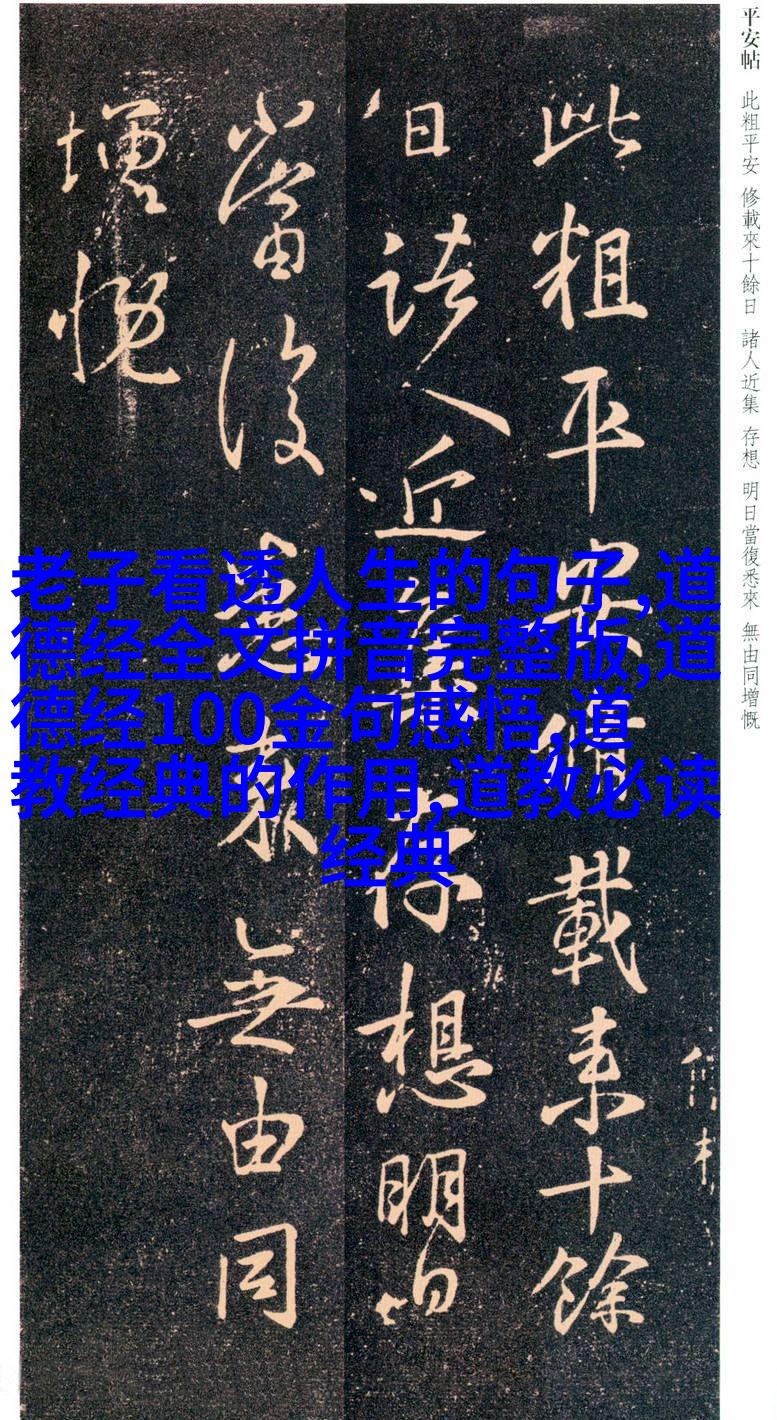 平安帖 此粗平安 修載來十餘日 諸人近集 存想 明日當復悉來 無由同增慨
此粗平安修載来十餘
日諸人近集存想明日
當復悉来無由同
增慨
老子看透人生的句子,道
德经全文拼音完整版,道
德经100金句感悟,道
教经典的作用,道教必读
经典